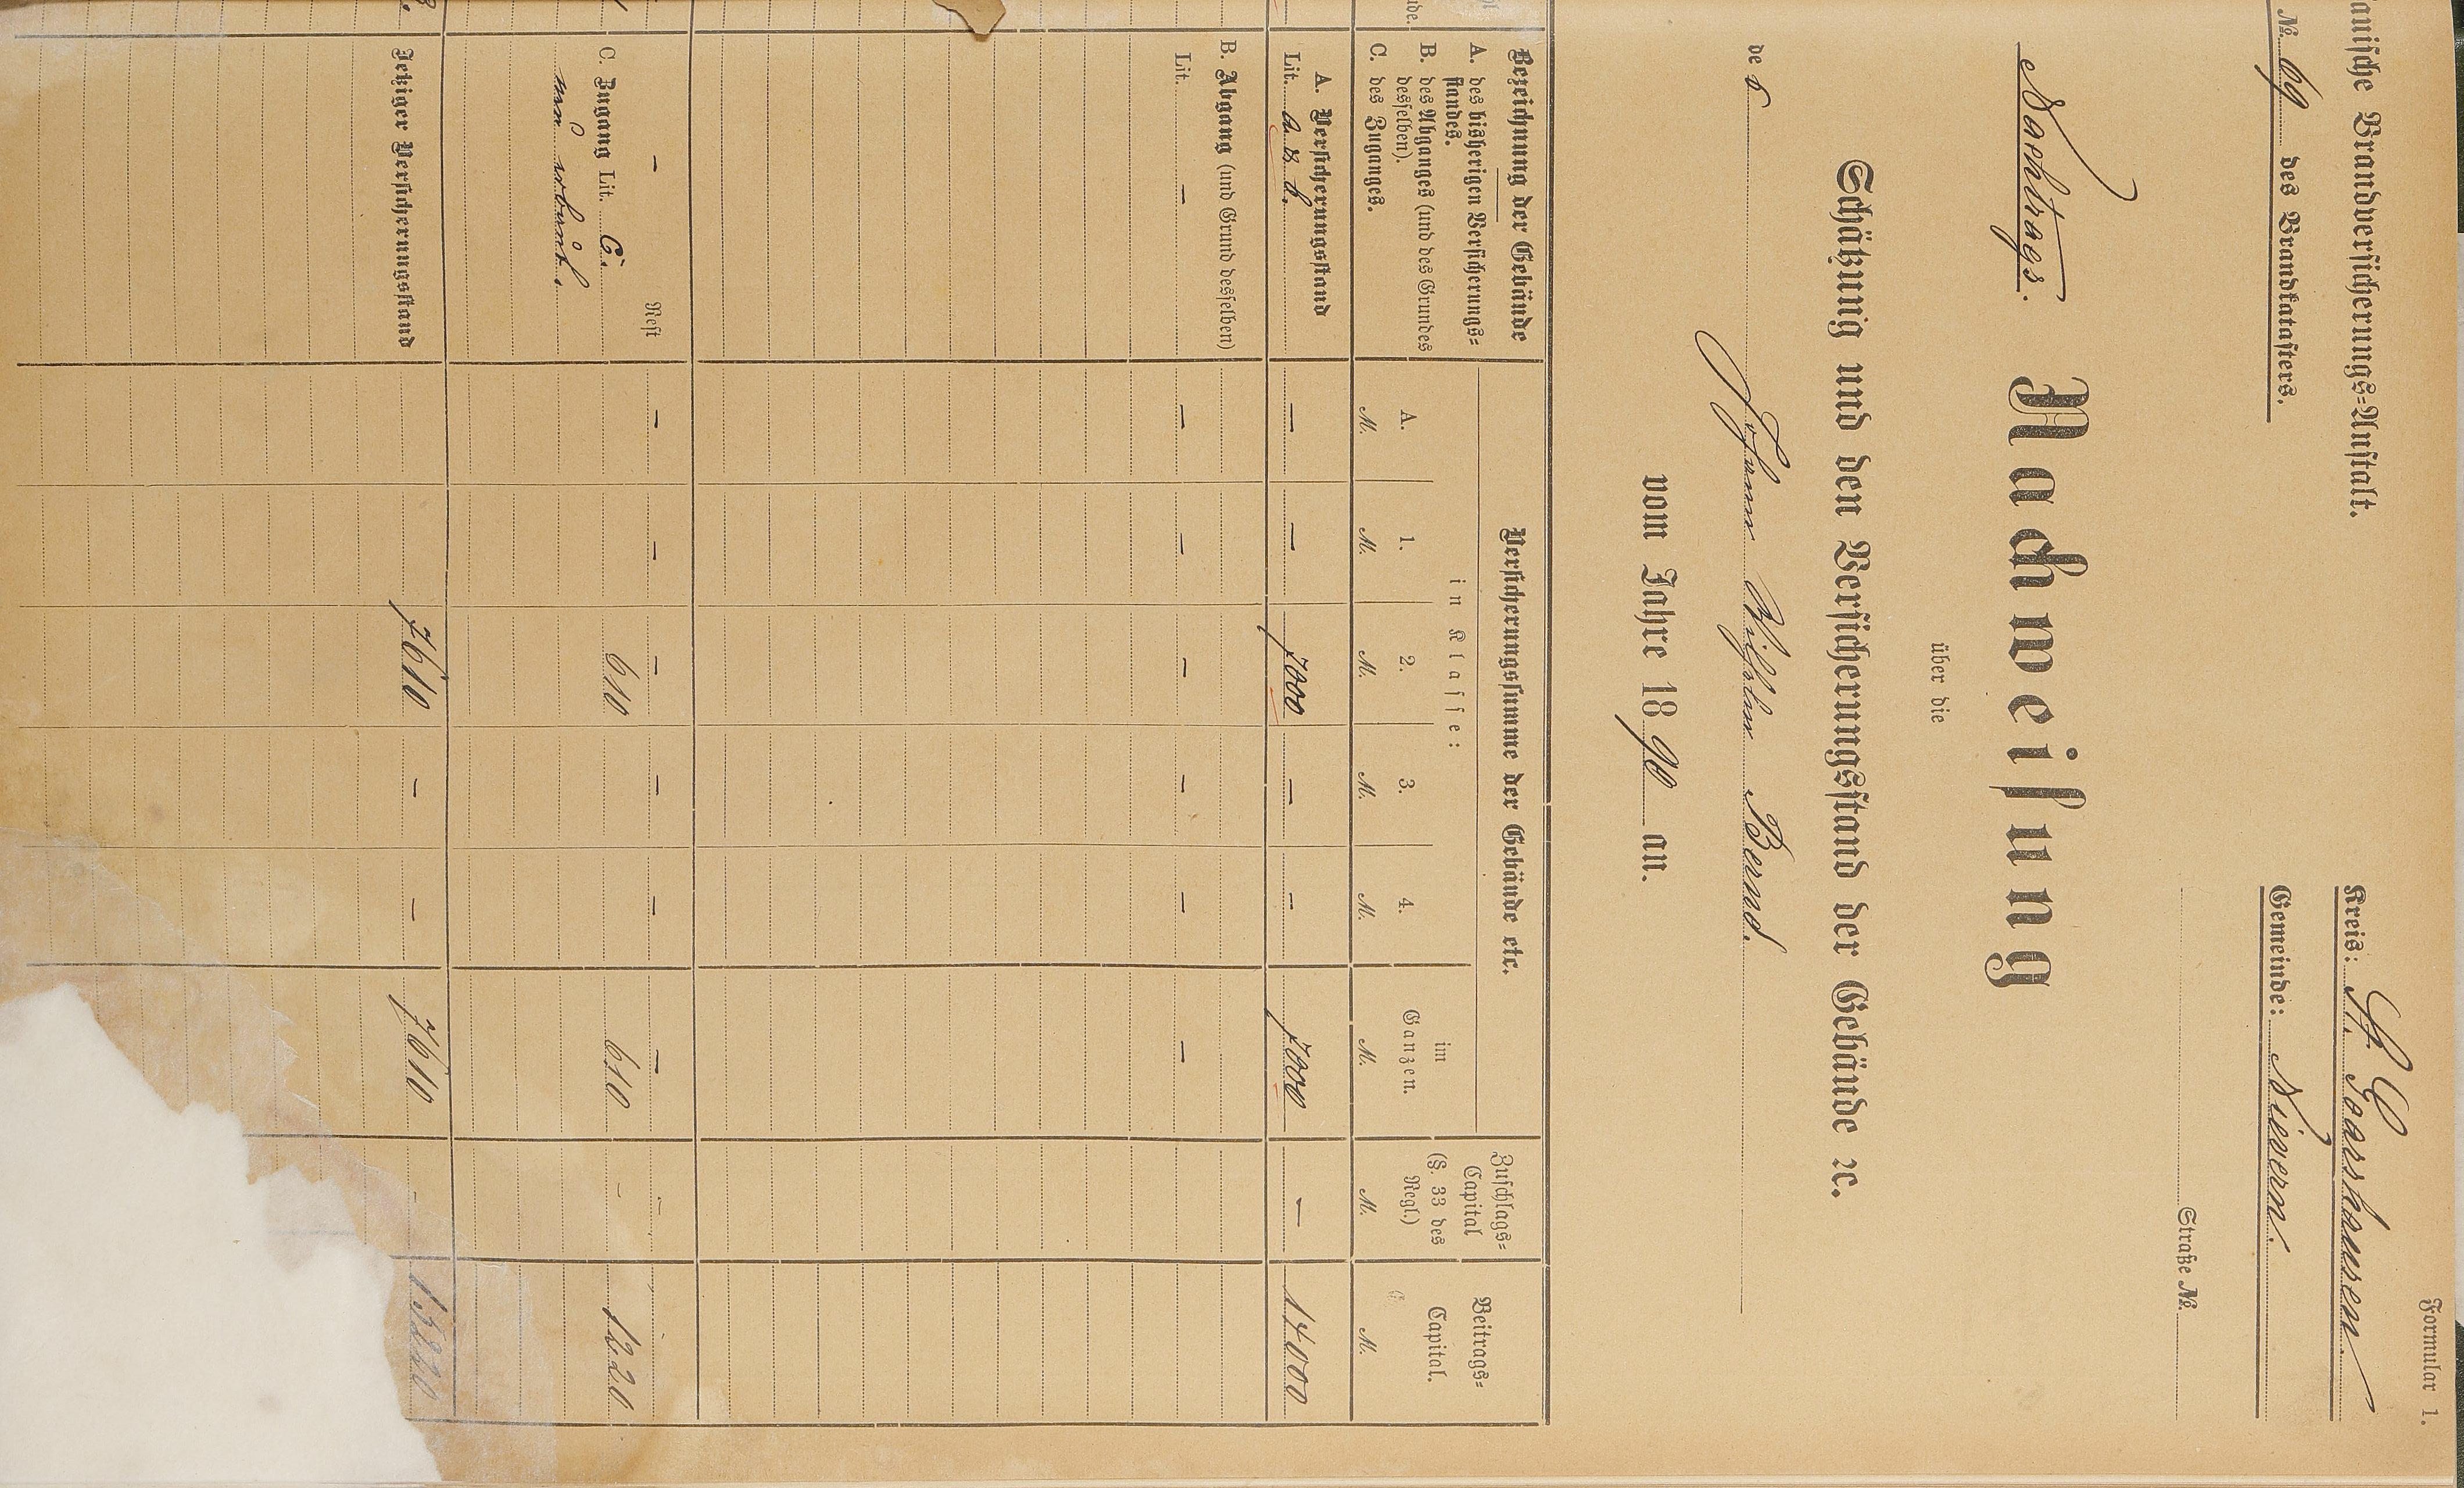 Formular 1.
anische Brandversicherungs-Anstalt.
Kreis: St. Goarshausen.
№ 69 des Brandkatasters.
Gemeinde: Nievern.
Straße №
Nachtrags.
Nachweisung
über die
Schätzung und den Versicherungsstand der Gebäude ꝛc.
des Johann Wilhelm Bernd.
vom Jahre 1890 an.
Bezeichnung der Gebäude
A. des bisherigen Versicherungs-
standes.
B. des Abganges (und des Grundes
desselben).
C. des Zuganges.
Versicherungssumme der Gebäude etc.
in Klasse:
A. 1. 2. 3. 4.
im
Ganzen.
Zuschlags-
Capital
(§. 33 des
Regl.)
Beitrags-
Capital.
M. M. M. M. M. M. M. M.
A. Versicherungsstand
Lit. a. & b. — — 7000 — — 7000 — 14000
B. Abgang (und Grund desselben)
Lit. — — — — — — —
Rest
— — — — — — — —
C. Zugang Lit. C. 610 610 — 1220
neu erbaut.
Jetziger Versicherungsstand 7610 — — 7610 — 15220